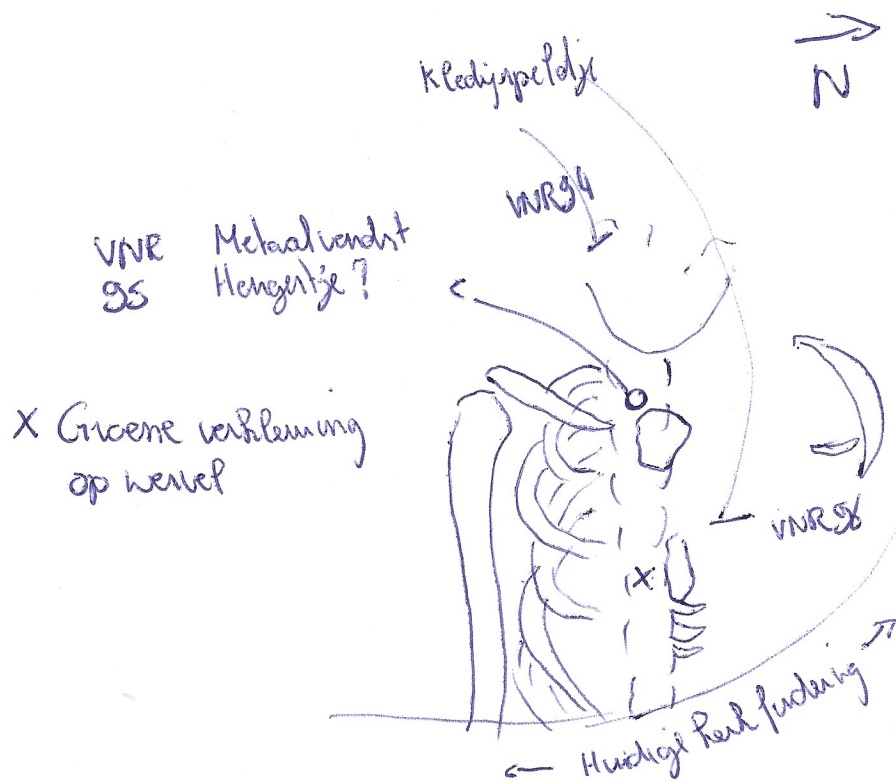 N
Kledijspeldje
VNR94
VNR Metaalvondst
95 Hengeltje?
X Groene verkleuring
op wervel
X
VNR96
Huidige kerk fundering